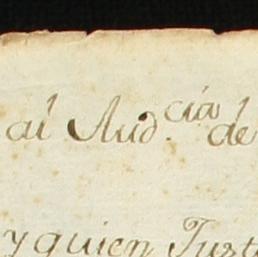 al Aud.cia de
y quien Just